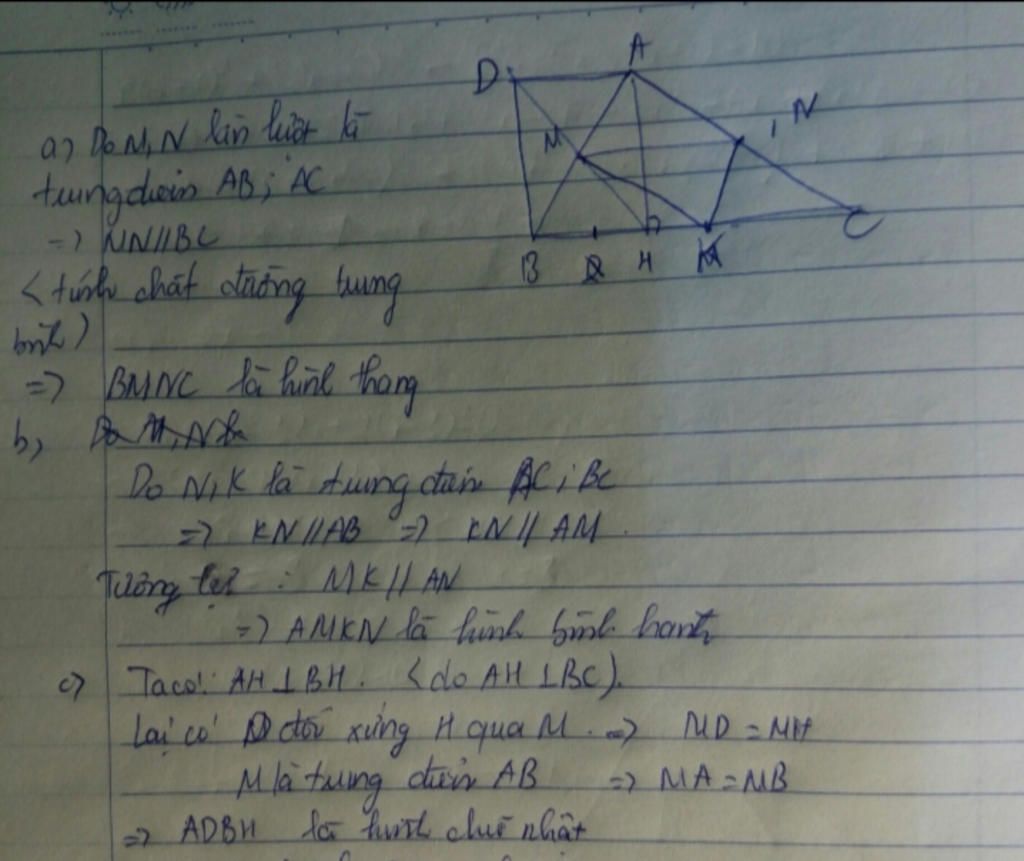 D
A
M
N
B
H
K
C
a) Do M, N lần lượt là
trung điểm AB; AC
=> MN // BC
<tính chất đường trung
bình)
=> BMNC là hình thang
b,
Do N, K là trung điểm AC; BC
=> KN // AB => KN // AM.
Tương tự : MK // AN
=> AMKN là hình bình hành
c) Ta có: AH ⊥ BH. <do AH ⊥ BC).
Lại có D đối xứng H qua M. => MD = MH
M là trung điểm AB => MA = MB
=> ADBH là hình chữ nhật